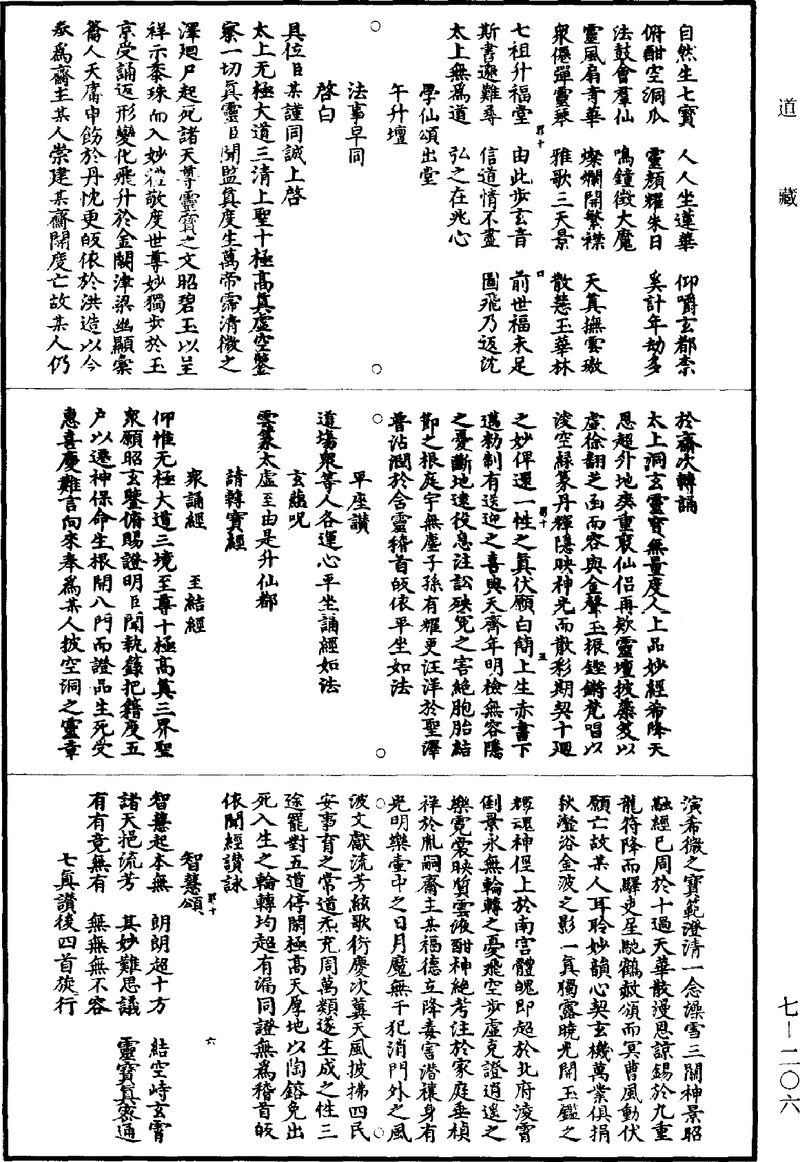 道藏
七—二〇六
自然生七寶　人人坐蓮華　仰嚼玄都柰
俯酣空洞瓜　靈顏耀朱日　奚計年劫多
法鼓會羣仙　鳴鐘徵大魔
靈風扇奇華　燦爛開繁襟　天真撫雲璈
衆僊彈靈琴　雅歌三天景　散慧玉華林
七祖升福堂　由此步玄音　前世福未足
斯書邈難尋　信道情不盡　圖飛乃返沈
太上無爲道　弘之在兆心
學仙頌出堂
午升壇
法事早同
啓白
具位臣某謹同誠上啓
太上无極大道三清上聖十極高真虛空鑒
察一切真靈臣聞監真度生萬帝霈清微之
澤廻尸起死諸天尊靈寶之文昭碧玉以呈
祥示黍珠而入妙從敬度世尊妙獨步於玉
京受誦返形變化飛升於金闕津梁幽顯彙
籥人天庸申飭於丹忱更皈依於洪造以今
奉爲齋主某人崇建某齋開度亡故某人仍
於齋次轉誦
太上洞玄靈寶無量度人上品妙經希降天
恩超外地爽重裒仙侣再欵靈壇披蘂笈以
虛徐翻之函而容與金聲玉振鏗鏘梵唱以
浚空綠篆丹釋隱映神光而散彩期契十迴
之妙俾還一性之真伏願白簡上生赤書下
邁勑制有送迎之喜與天齊年明檢無容隱
之憂斷地逮役息注訟殃冤之害絶胞胎結
節之根庭宇無塵子孫有耀更汪洋於聖澤
普沾潤於含靈稽首皈依平坐如法
平座讚
道場衆等人各運心平坐誦經如法
玄蘊呪
雲篆太虛至由是升仙都
請轉寶經
衆誦經　至結經
仰惟无極大道三境至尊十極高真三界聖
衆願昭玄鑒俯賜證明臣聞執籙把籍度五
户以遷神保命生根開八門而證品生死受
惠喜慶難言向來奉爲某人披空洞之靈章
演希微之寶範澄清一念澡雪三關神景昭
融經已周於十過天華散漫恩諒錫於九重
龍符降而驛吏星馳鶴赦頒而冥曹風動伏
願亡故某人耳聆妙韻心契玄機萬業俱捐
秋瀅浴金波之影一真獨露曉光開玉鑑之
輝魂神徑上於南宫體魄即超於北府淩霄
倒景永無輪轉之憂飛空步虛克證逍遥之
樂霓裳映質雲液酣神絶考注於家庭垂楨
祥於胤嗣齋主某福德立降毒害潛穰身有
光明樂童中之日月魔無干犯消門外之風
波文獻流芳絃歌衍慶次冀天風披拂四民
安事育之常道炁充周萬類遂生成之性三
途罷對五道停關極高天厚地以陶鎔免出
死入生之輪轉均超有漏同證無爲稽首皈
依闕經讚詠
智慧頌
智慧起本無　朗朗超十方　結空峙玄霄
諸天挹流芳　其妙難思議　靈寶真實通
有有竟無有　無無無不容
七真讚後四首旋行